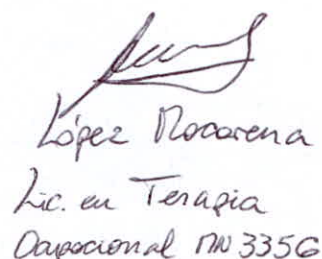 López Macarena
Lic. en Terapia
Ocupacional MN 3356